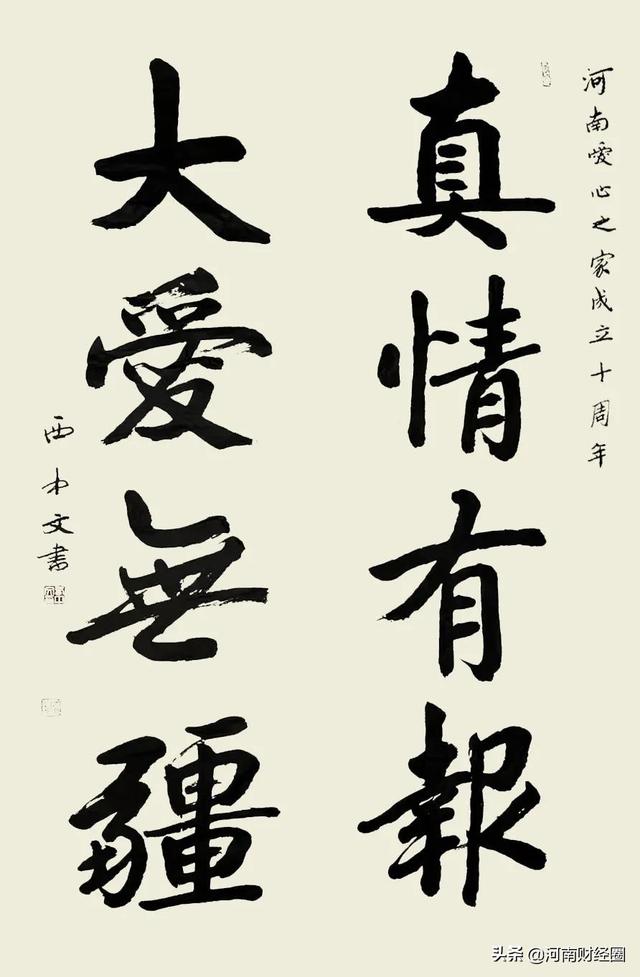 河南愛心之家成立十周年
真情有報
大愛無疆
西中文書
头条 @河南财经圈